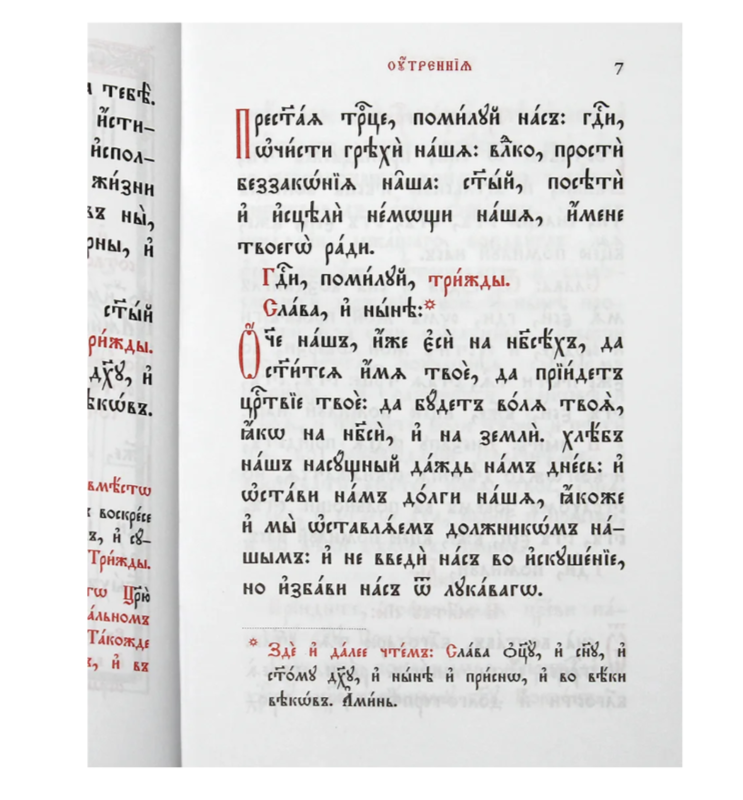 тебѣ̀.
и҆́сти–
и҆спол–
жи́зни
въ ны̀,
рны, и҆
ст҃ы́й
ри́жды.
дх҃ꙋ, и҆
ѣкѡ́въ.
вмѣ́стѡ
воскре́се
ъ, и҆ сꙋ–
Три́жды.
гѡ Цр҃ю̀
а́льномъ
Та́кожде
ъ, и҆ въ
ᲂу҆́треннїѧ 7
Прест҃а́ѧ трⷪ҇це, поми́лꙋй на́съ: гдⷭ҇и,
ѡ҆чи́сти грѣхѝ на́шѧ: влⷣко, простѝ
беззакѡ́нїѧ на̑ша: ст҃ы́й, посѣтѝ
и҆ и҆сцѣлѝ не́мѡщи на́шѧ, и҆́мене
твоегѡ̀ ра́ди.
Гдⷭ҇и, поми́лꙋй, три́жды.
Сла́ва, и҆ ны́нѣ:*
Ѻ҆́ч҃е на́шъ, и҆́же є҆сѝ на нб҃сѣ́хъ, да
ст҃и́тсѧ и҆́мѧ твоѐ, да прїи́детъ
црⷭ҇твїе твоѐ: да бꙋ́детъ во́лѧ твоѧ̀,
ꙗ҆́кѡ на нб҃сѝ, и҆ на землѝ. хлѣ́бъ
на́шъ насꙋ́щный да́ждь на́мъ дне́сь: и҆
ѡ҆ста́ви на́мъ до́лги на́шѧ, ꙗ҆́коже
и҆ мы̀ ѡ҆ставлѧ́емъ должникѡ́мъ на́–
шымъ: и҆ не введѝ на́съ во и҆скꙋше́нїе,
но и҆зба́ви на́съ ѿ лꙋка́вагѡ.
* Здѐ и҆ да́лее чте́мъ: Сла́ва ѻ҆ц҃ꙋ̀, и҆ сн҃ꙋ, и҆
ст҃о́мꙋ дх҃ꙋ, и҆ ны́нѣ и҆ при́снѡ, и҆ во вѣ́ки
вѣкѡ́въ. А҆ми́нь.